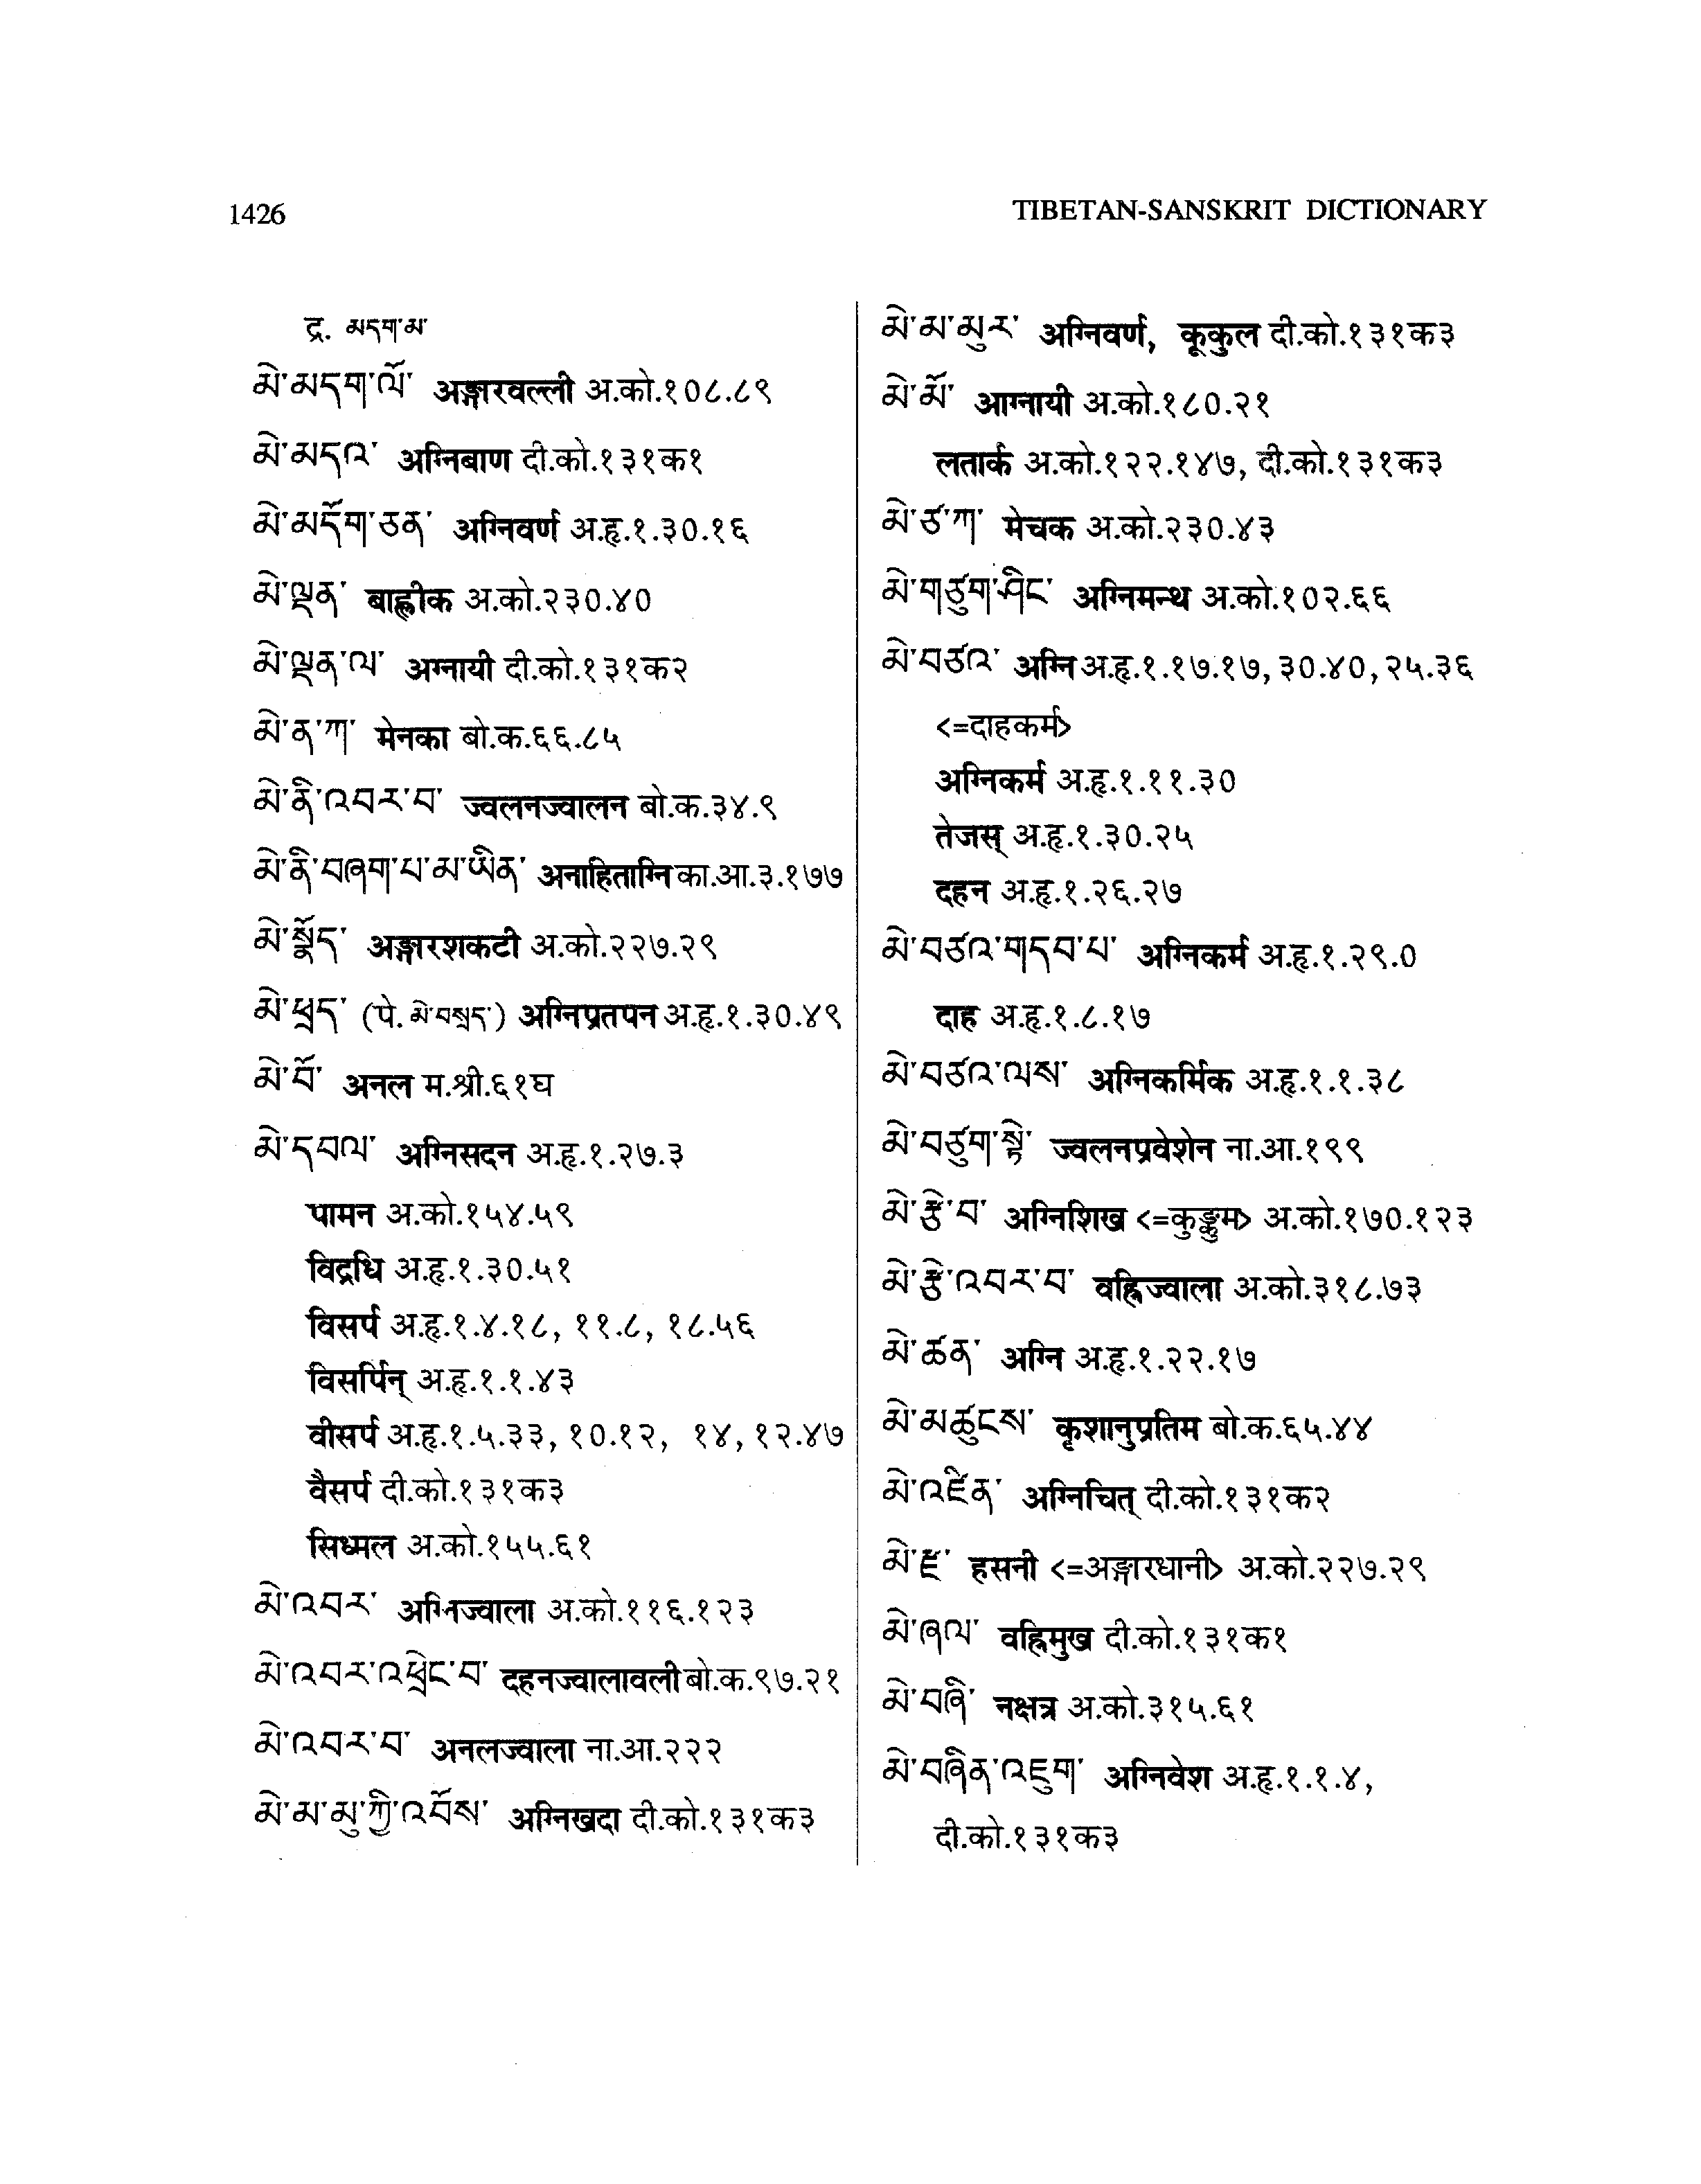 1426
TIBETAN-SANSKRIT DICTIONARY
द्र. མདག་མ་
མེ་མདག་ལོ་ अङ्गारवल्ली अ.को.१०८.८९
མེ་མདའ་ अग्निबाण दी.को.१३१क१
མེ་མདོག་ཅན་ अग्निवर्ण अ.हृ.१.३०.१६
མེ་ལྡན་ बाह्लीक अ.को.२३०.४०
མེ་ལྡན་ལ་ अग्नायी दी.को.१३१क२
མེ་ན་ཀ་ मेनका बो.क.६६.८५
མེ་ནི་འབར་བ་ ज्वलनज्वालन बो.क.३४.९
མེ་ནི་བཞག་པ་མ་ཡིན་ अनाहिताग्नि का.आ.३.१७७
མེ་སྣོད་ अङ्गारशकटी अ.को.२२७.२९
མེ་ཕྲད་ (पे. མེ་བསྲད་) अग्निप्रतपन अ.हृ.१.३०.४९
མེ་བོ་ अनल म.श्री.६१घ
མེ་དབལ་ अग्निसदन अ.हृ.१.२७.३
पामन अ.को.१५४.५९
विद्रधि अ.हृ.१.३०.५१
विसर्प अ.हृ.१.४.१८, ११.८, १८.५६
विसर्पिन् अ.हृ.१.१.४३
वीसर्प अ.हृ.१.५.३३, १०.१२, १४, १२.४७
वैसर्प दी.को.१३१क३
सिध्मल अ.को.१५५.६१
མེ་འབར་ अग्निज्वाला अ.को.११६.१२३
མེ་འབར་འཕྲེང་བ་ दहनज्वालावली बो.क.९७.२१
མེ་འབར་བ་ अनलज्वाला ना.आ.२२२
མེ་མ་མུ་ཀྱི་འབོས་ अग्निखदा दी.को.१३१क३
མེ་མ་མུར་ अग्निवर्ण, कूकुल दी.को.१३१क३
མེ་མོ་ आग्नायी अ.को.१८०.२१
लतार्क अ.को.१२२.१४७, दी.को.१३१क३
མེ་ཙ་ཀ་ मेचक अ.को.२३०.४३
མེ་གཙུག་ཤིང་ अग्निमन्थ अ.को.१०२.६६
མེ་བཙའ་ अग्नि अ.हृ.१.१७.१७, ३०.४०, २५.३६
<=दाहकर्म>
अग्निकर्म अ.हृ.१.११.३०
तेजस् अ.हृ.१.३०.२५
दहन अ.हृ.१.२६.२७
མེ་བཙའ་གདབ་པ་ अग्निकर्म अ.हृ.१.२९.०
दाह अ.हृ.१.८.१७
མེ་བཙའ་ལས་ अग्निकर्मिक अ.हृ.१.१.३८
མེ་བཙུག་སྟེ་ ज्वलनप्रवेशेन ना.आ.१९९
མེ་རྩེ་བ་ अग्निशिख <=कुङ्कुम> अ.को.१७०.१२३
མེ་རྩེ་འབར་བ་ वह्निज्वाला अ.को.३१८.७३
མེ་ཚན་ अग्नि अ.हृ.१.२२.१७
མེ་མཚུངས་ कृशानुप्रतिम बो.क.६५.४४
མེ་འཛིན་ अग्निचित् दी.को.१३१क२
མེ་རྫ་ हसनी <=अङ्गारधानी> अ.को.२२७.२९
མེ་ཞལ་ वह्निमुख दी.को.१३१क१
མེ་བཞི་ नक्षत्र अ.को.३१५.६१
མེ་བཞིན་འཇུག་ अग्निवेश अ.हृ.१.१.४,
दी.को.१३१क३